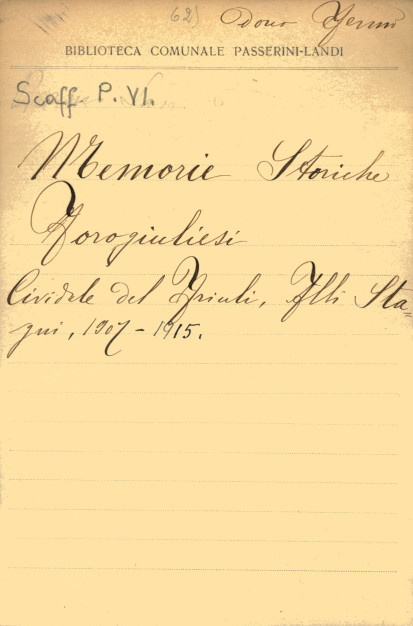 62) Dono
BIBLIOTECA COMUNALE PASSERINI-LANDI
Scaff. P. VI.
Memorie Storiche
Forogiuliesi
Cividale del Friuli, Flli Sta=
gni, 1907-1915.